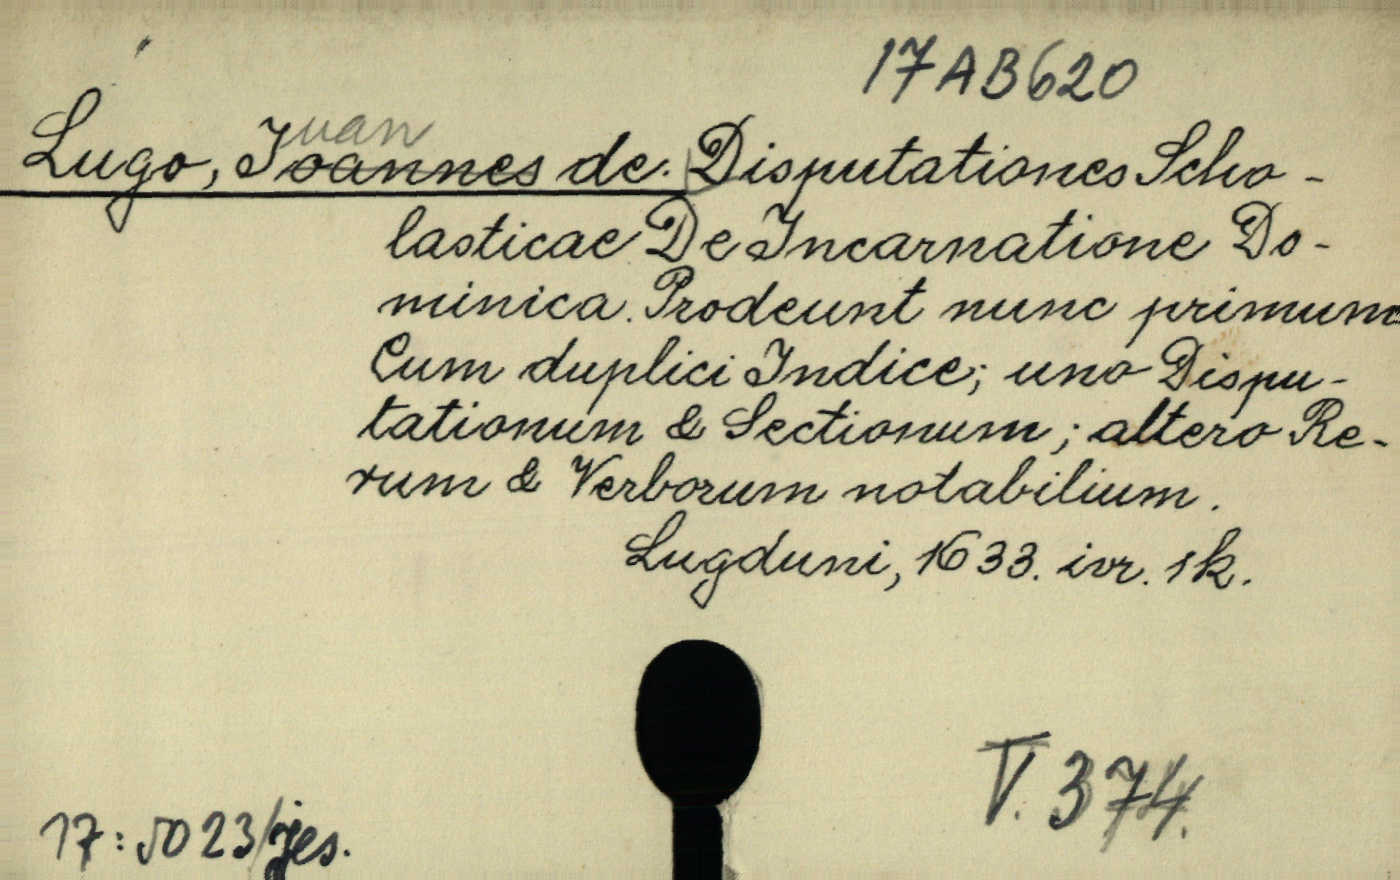 17AB620
uan
Lugo, Joannes de. Disputationes Scho-
lasticae De Incarnatione Do-
minica. Prodeunt nunc primum
Cum duplici Indice; uno Dispu-
tationum & Sectionum; altero Re-
rum & Verborum notabilium.
Lugduni, 1633. ivr. 1k.
V. 374.
17:5023/jes.